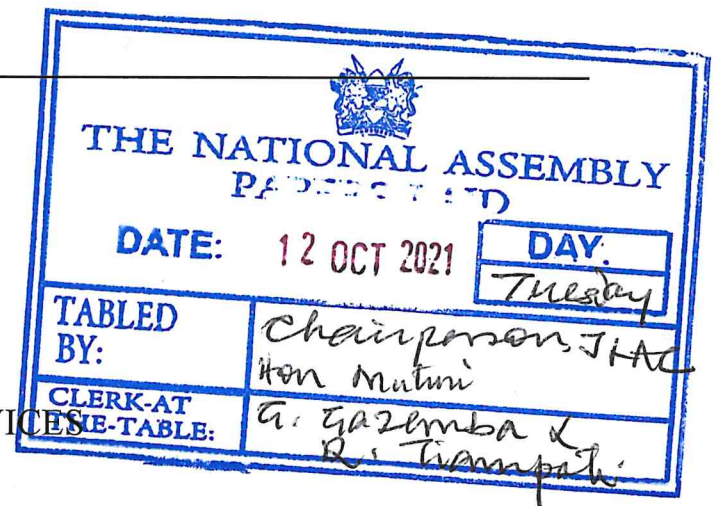 THE NATIONAL ASSEMBLY
PAPERS LAID
DATE: 12 OCT 2021 DAY:
Tuesday
TABLED BY: Chairperson, JLAC
Hon Muturi
VICES
CLERK-AT THE-TABLE: G. Gazemba &
R. Tiampati